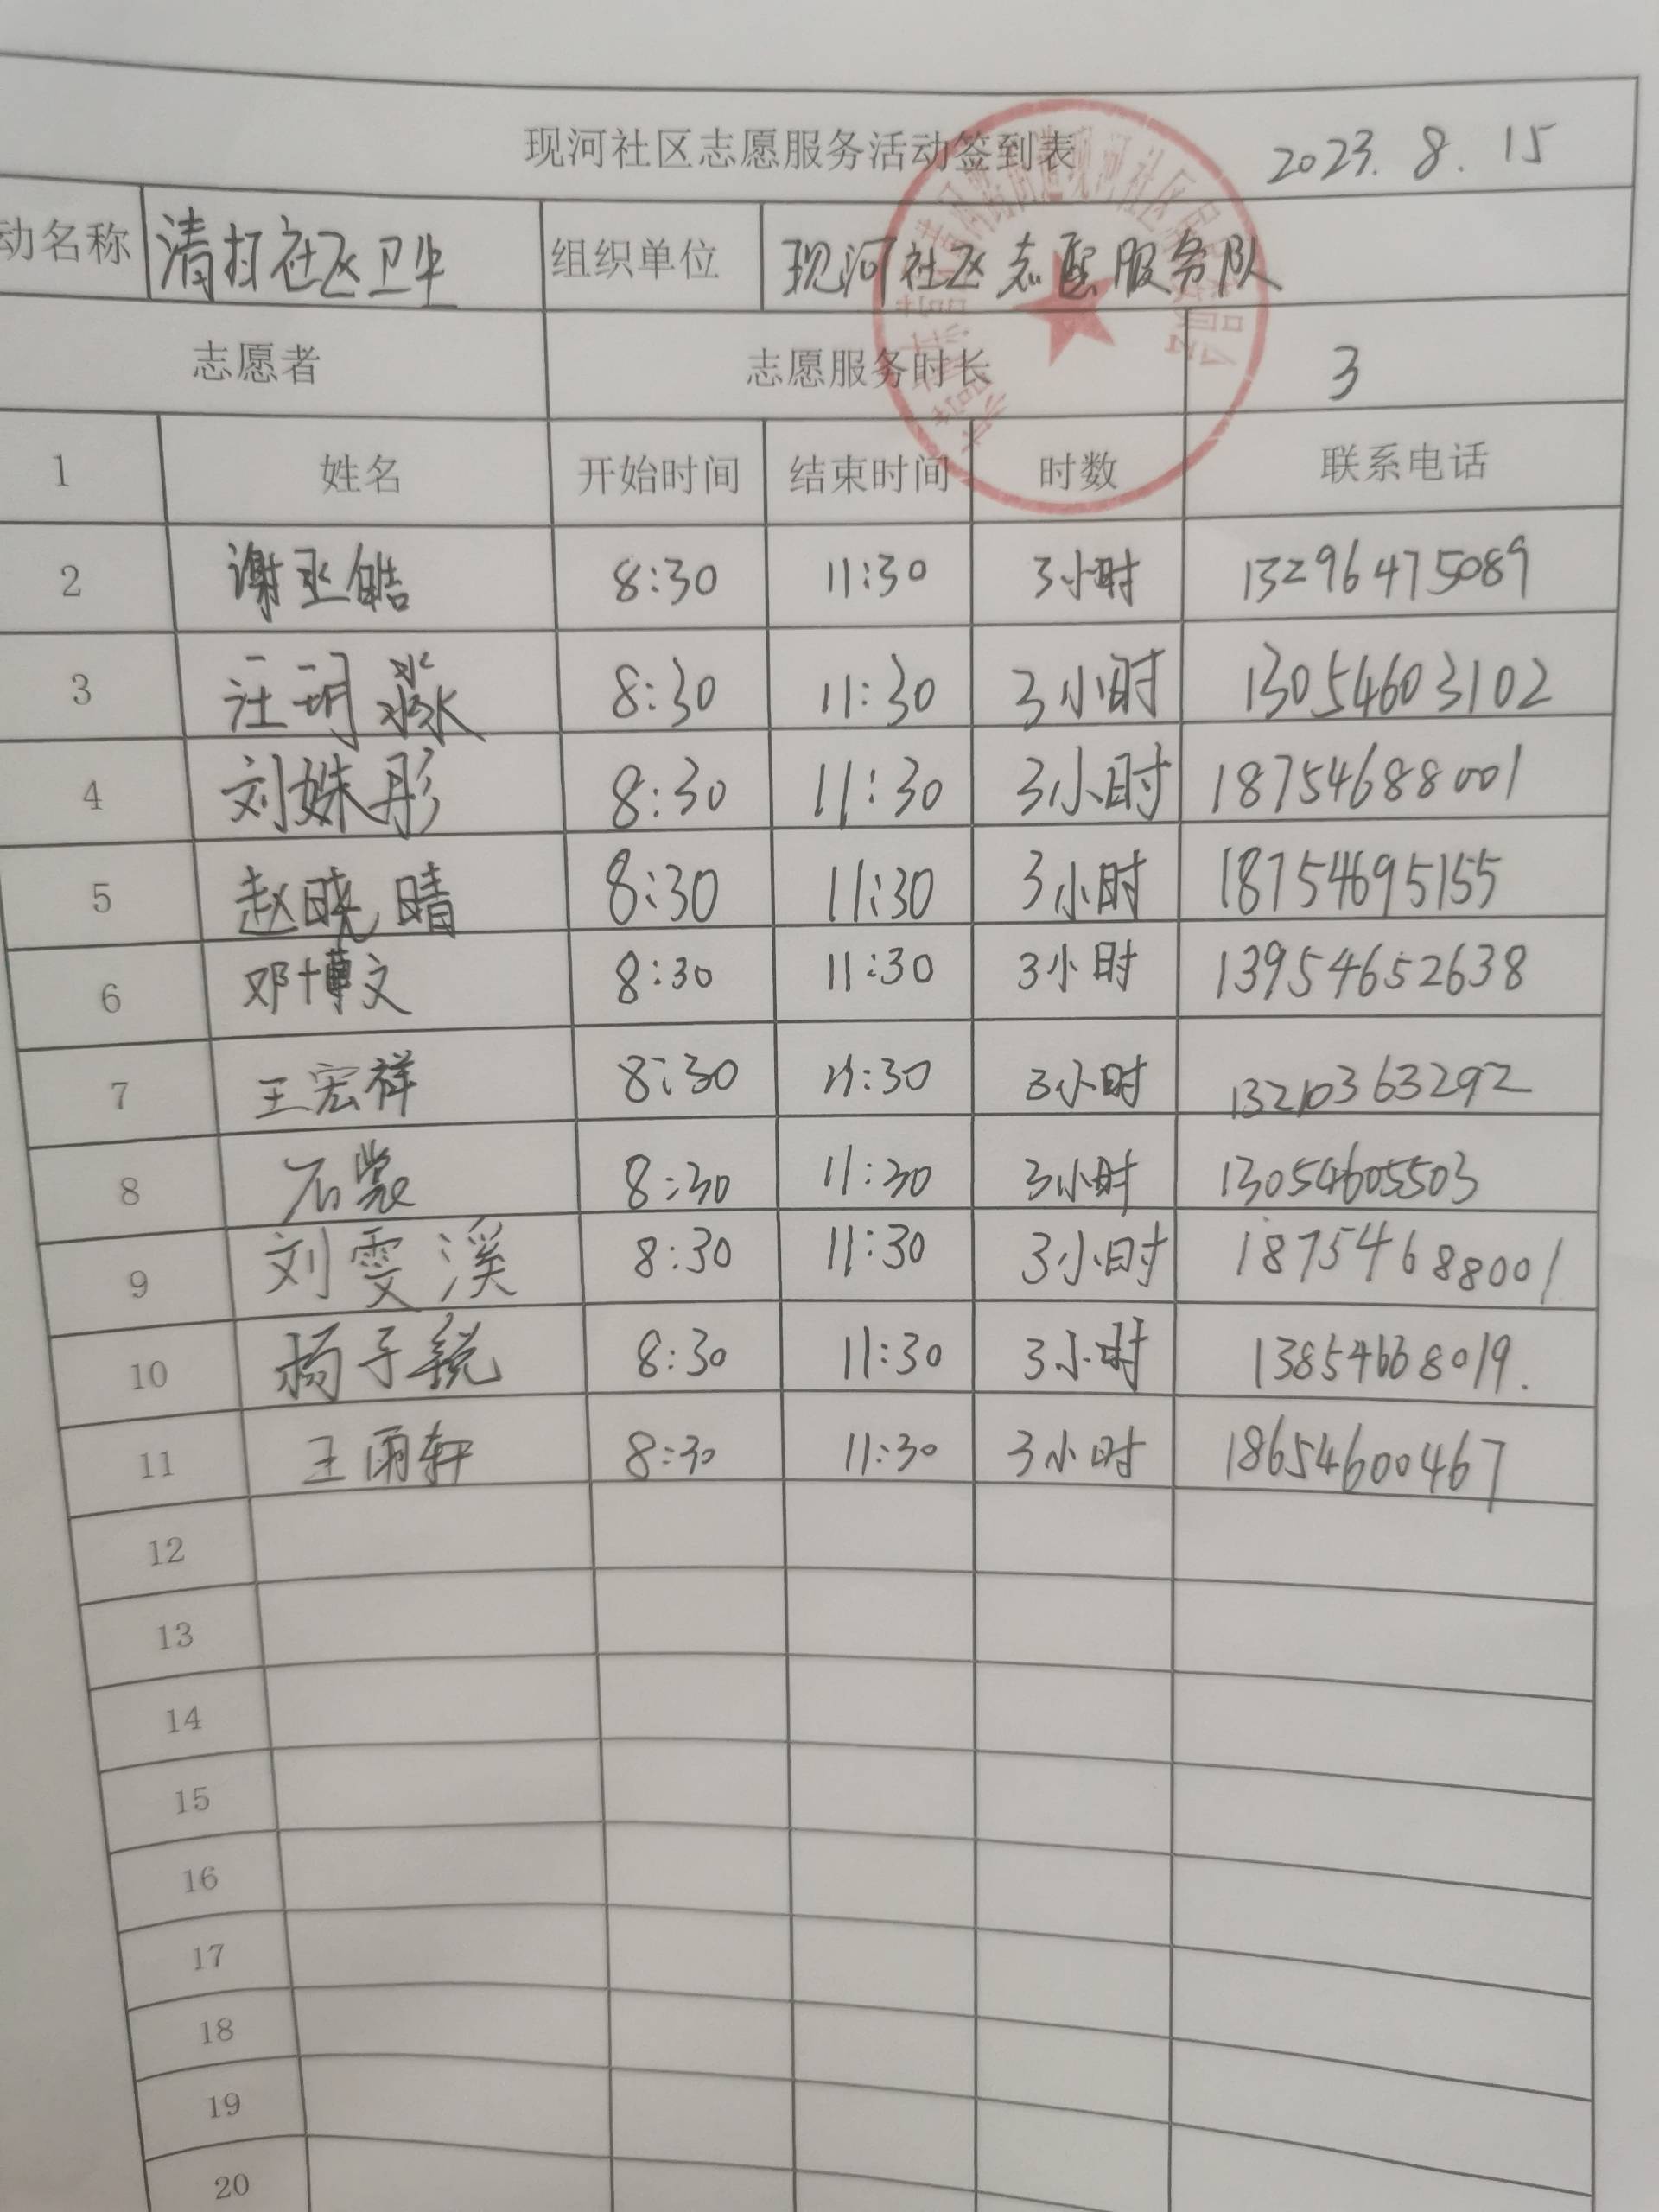 现河社区志愿服务活动签到表 2023.8.15
动名称 清扫社区卫生 组织单位 现河社区志愿服务队
志愿者 志愿服务时长 3
1 姓名 开始时间 结束时间 时数 联系电话
2 谢丞皓 8:30 11:30 3小时 13296475089
3 汪玥淼 8:30 11:30 3小时 13054603102
4 刘姝彤 8:30 11:30 3小时 18754688001
5 赵晓晴 8:30 11:30 3小时 18754695155
6 邓博文 8:30 11:30 3小时 13954652638
7 王宏祥 8:30 11:30 3小时 13210363292
8 石裳 8:30 11:30 3小时 13054605503
9 刘雯溪 8:30 11:30 3小时 18754688001
10 杨子锐 8:30 11:30 3小时 13854668019.
11 王雨轩 8:30 11:30 3小时 18654600467
12
13
14
15
16
17
18
19
20